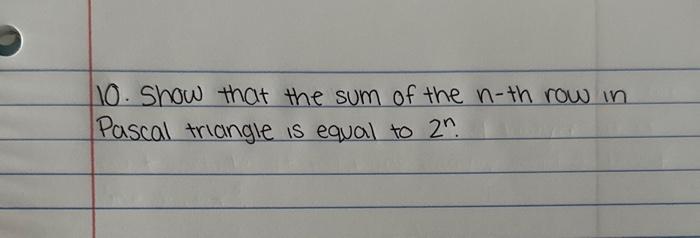 10. Show that the sum of the n-th row in
Pascal triangle is equal to 2ⁿ.